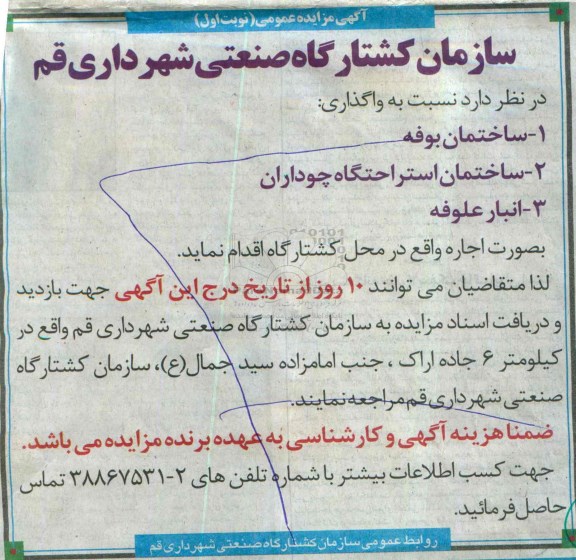 آگهی مزایده عمومی (نوبت اول)
سازمان کشتارگاه صنعتی شهرداری قم
در نظر دارد نسبت به واگذاری:
۱-ساختمان بوفه
۲-ساختمان استراحتگاه چوداران
۳-انبار علوفه
بصورت اجاره واقع در محل کشتارگاه اقدام نماید.
لذا متقاضیان می توانند ۱۰ روز از تاریخ درج این آگهی جهت بازدید
و دریافت اسناد مزایده به سازمان کشتارگاه صنعتی شهرداری قم واقع در
کیلومتر ۶ جاده اراک ، جنب امامزاده سید جمال(ع)، سازمان کشتارگاه
صنعتی شهرداری قم مراجعه نمایند.
ضمنا هزینه آگهی و کارشناسی به عهده برنده مزایده می باشد.
جهت کسب اطلاعات بیشتر با شماره تلفن های ۲-۳۸۸۶۷۵۳۱ تماس
حاصل فرمائید.
روابط عمومی سازمان کشتارگاه صنعتی شهرداری قم